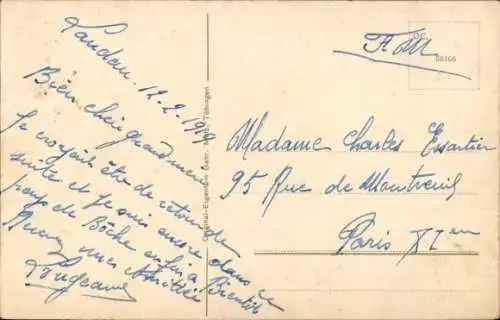 Landau. 12-2-1919
Bien cher grand'mère
Je croyais être de retour de
suite et je suis encore dans le
pays de Boche enfin à Bientôt
amitiés
F. M
OC
Original-Eigentum Gebr. Metz, Tübingen
Madame Charles Essartier
95 Rue de Montreuil
Paris XI em